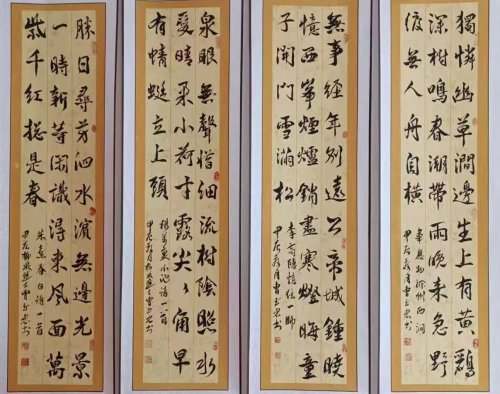 獨憐幽草澗邊生上有黃鸝
深樹鳴春潮帶雨晚來急野
渡無人舟自橫
韋應物滁州西澗
無事經年別遠公帝城鐘曉
憶西峯煙爐銷盡寒燈晦童
子開門雪滿松
李商隱憶住一師
泉眼無聲惜細流樹陰照水
愛晴柔小荷才露尖々角早
有蜻蜓立上頭
楊萬里小池詩一首
勝日尋芳泗水濱無邊光景
一時新等閑識得東風面萬
紫千紅總是春
朱熹春日詩一首